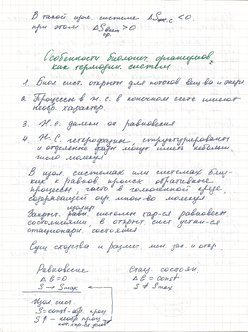 В такой проц. системе ΔSж.с < 0,
при этом ΔS внеш. ср. > 0
Особенности биологич. организмов,
как термодин. систем
1. Биол. сист. открыты для потоков вещ-ва и энерг.
2. Процессы в ж.с. в конечном счете имеют
необр. характер
3. Ж.с. далеки от равновесия
4. Ж.с. гетерофазны, структурированы
и отдельные фазы могут иметь небольш.
число молекул
В изол. системах или системах
к равнов.
процессы, часто в гомогенной среде,
содержащей огр. множ-во молекул
изолир.
состояниями в открыт. сист. устан-ся
стационарн. состояния
Сущ. сходства и различ. меж.
Равновесие Стац. состоян.
ΔG=0 ΔG=const
S → Smax S ≠ Smax
Изол. сист.
S=const - обр. проц.
S↑ - необр. проц.